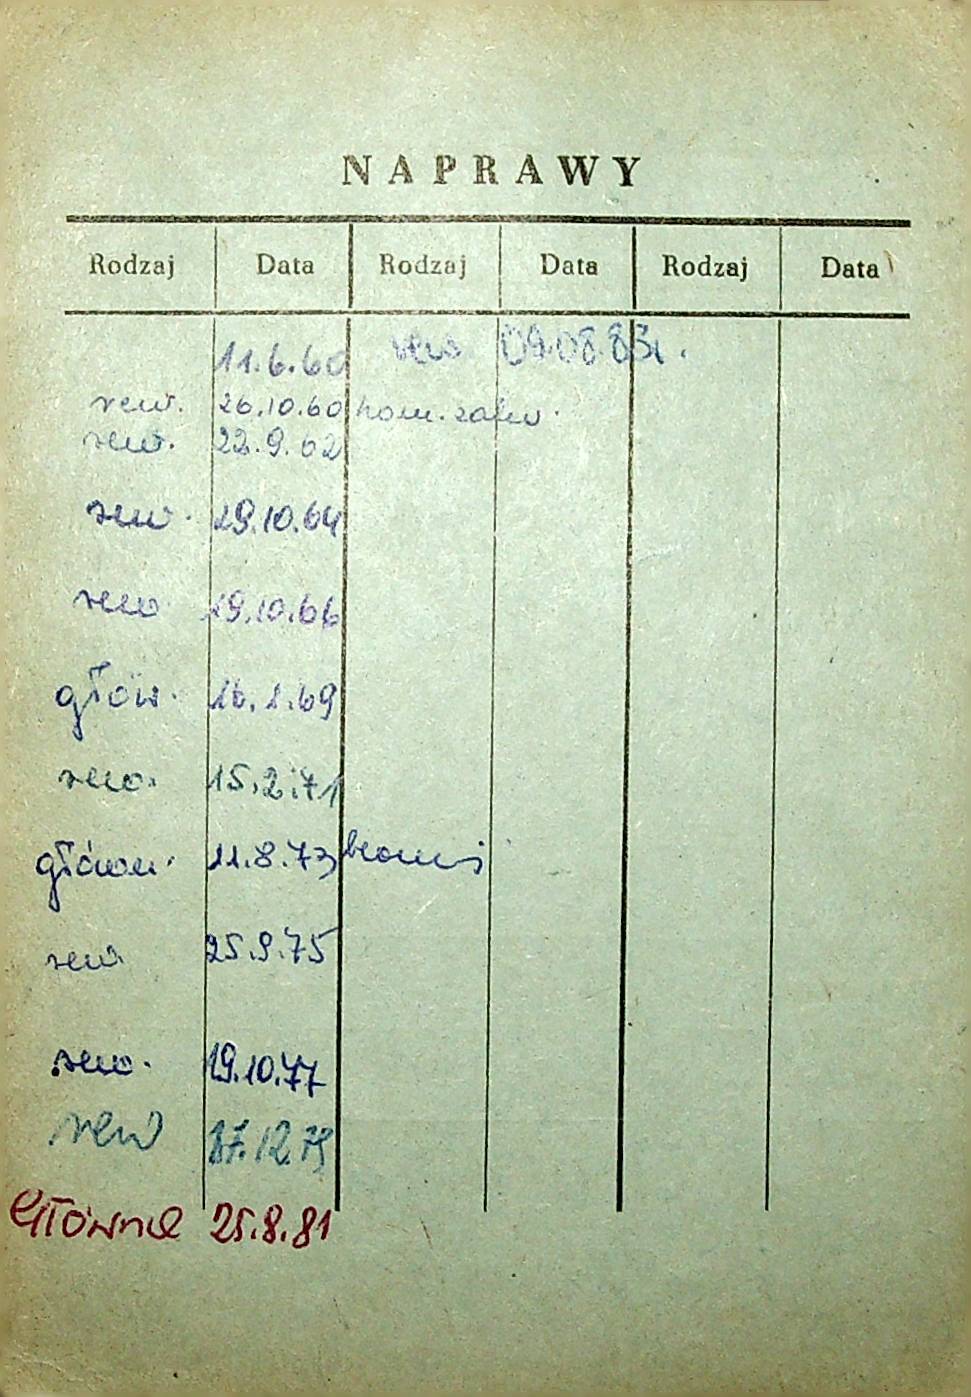 NAPRAWY
Rodzaj Data Rodzaj Data Rodzaj Data
11.6.60 rew 09.08.83r.
rew. 26.10.60 ham. zahw.
rew. 22.9.62
rew. 29.10.64
rew 29.10.66
głów. 16.1.69
rew. 15.2.71
główn. 11.8.73
rew 25.9.75
rew. 19.10.77
rew 17.12.79
Główna 25.8.81